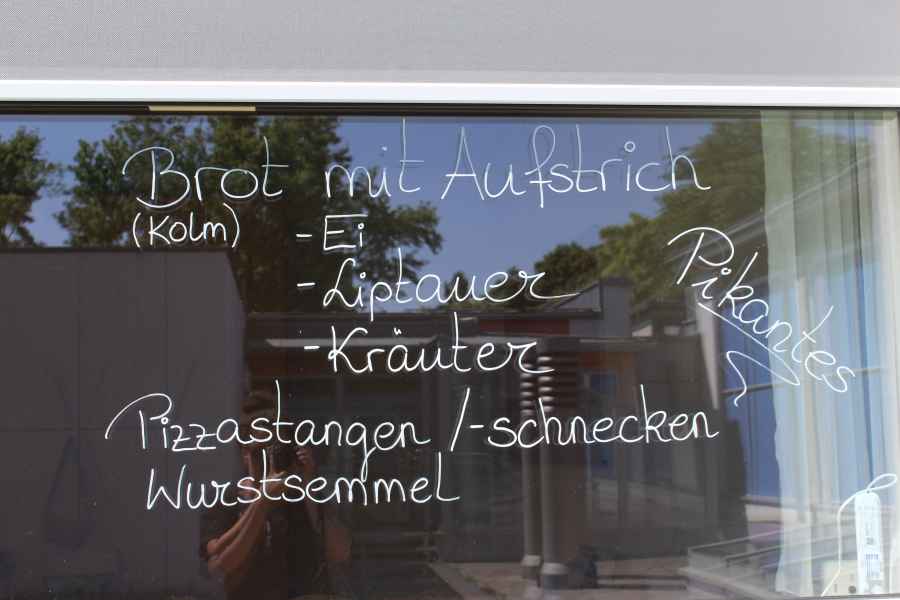 Brot mit Aufstrich
(Kolm) - Ei
- Liptauer
- Kräuter
Pikantes
Pizzastangen /-schnecken
Wurstsemmel